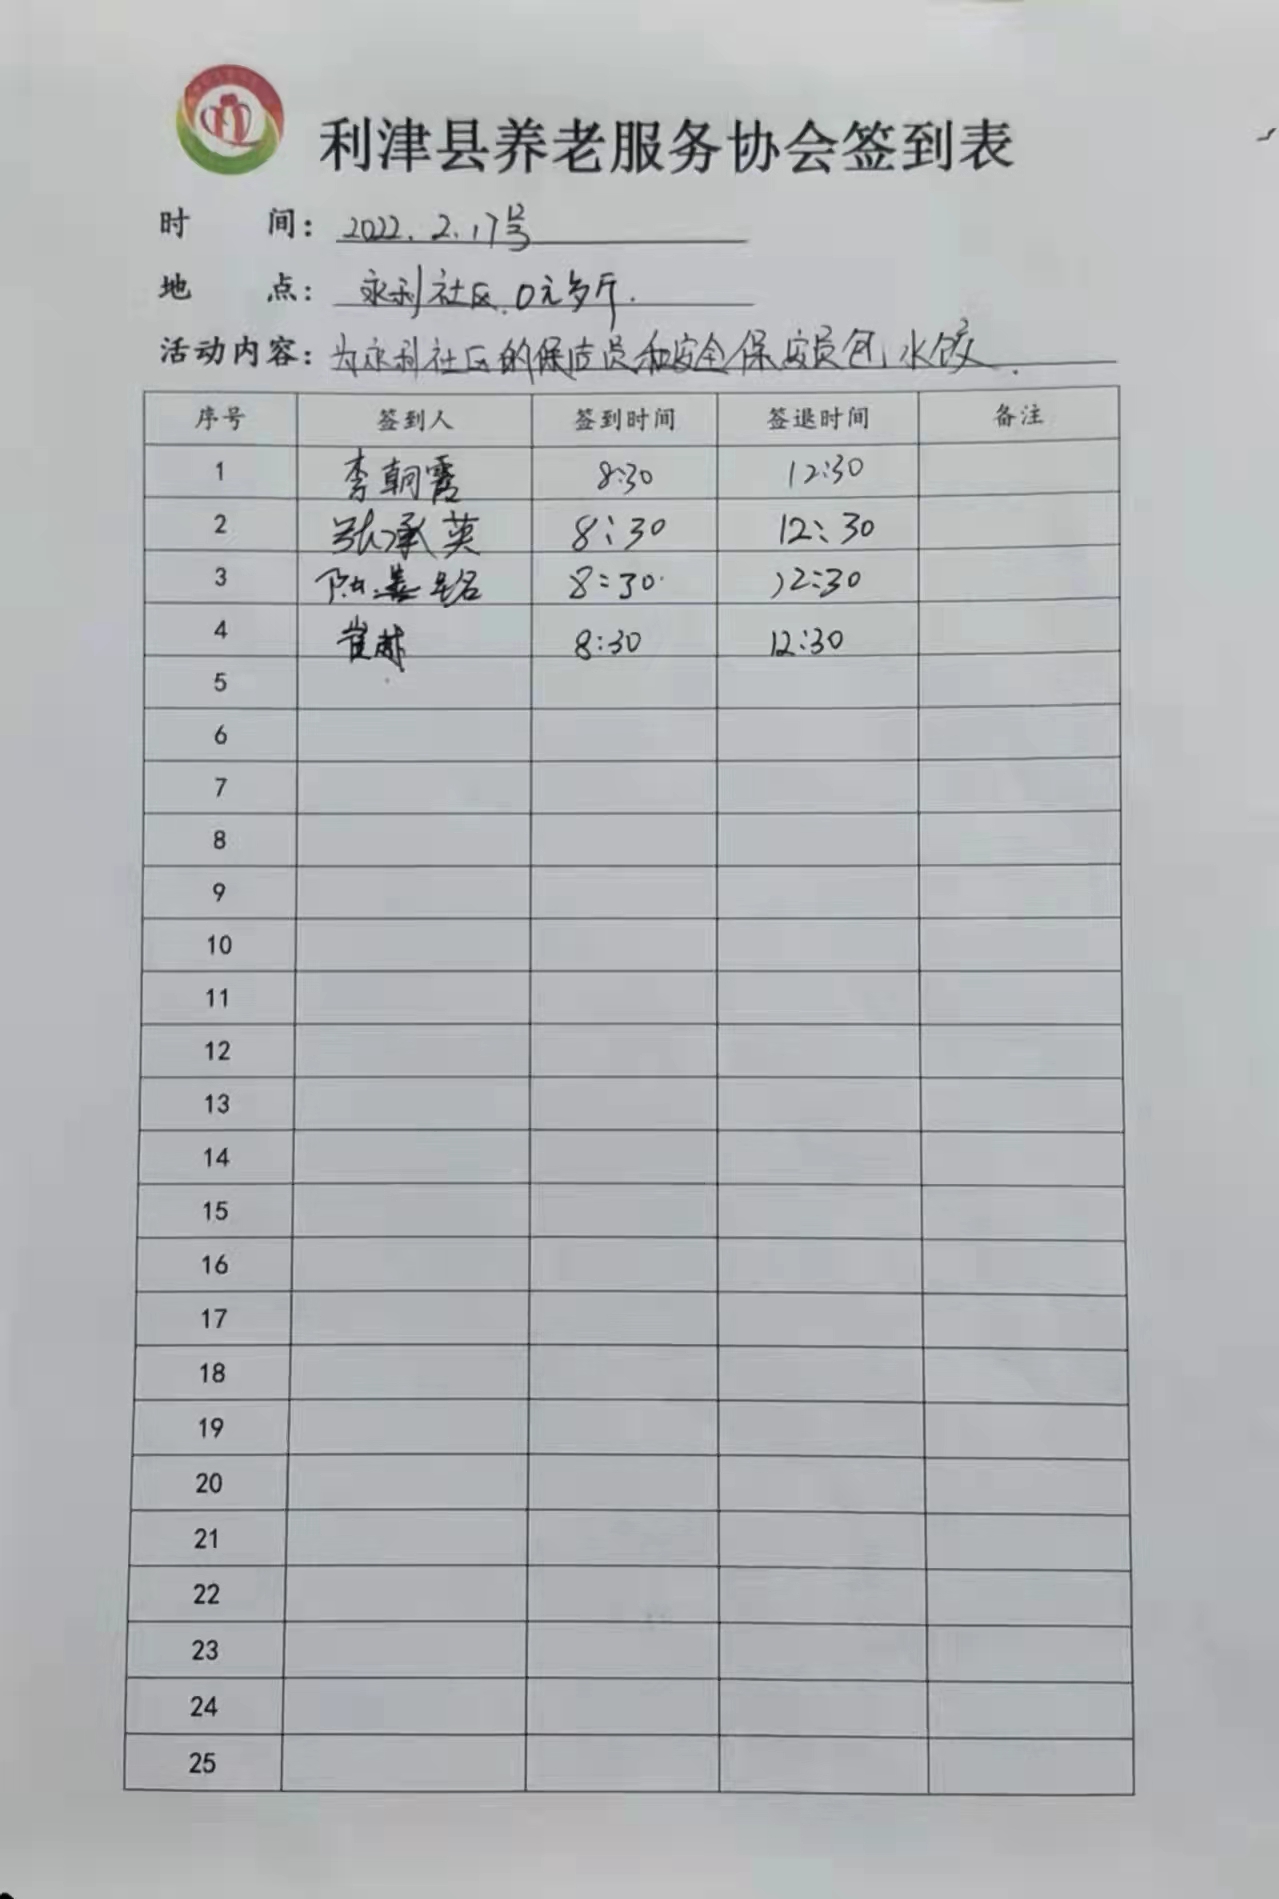 利津县养老服务协会签到表
时 间: 2022.2.17号
地 点: 永利社区.0元多斤.
活动内容: 为永利社区的保洁员和安全保安员包水饺.
序号 签到人 签到时间 签退时间 备注
1 李朝霞 8:30 12:30
2 张承英 8:30 12:30
3 8:30 12:30
4 崔 8:30 12:30
5
6
7
8
9
10
11
12
13
14
15
16
17
18
19
20
21
22
23
24
25